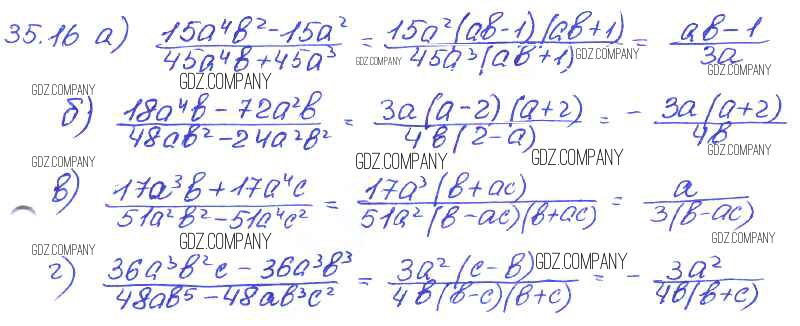 35.16 а) (15a⁴b² - 15a²)/(45a⁴b + 45a³) = (15a²(ab-1)(ab+1))/(45a³(ab+1)) = (ab-1)/(3a)
GDZ.COMPANY GDZ.COMPANY GDZ.COMPANY GDZ.COMPANY
GDZ.COMPANY
б) (18a⁴b - 72a²b)/(48ab² - 24a²b²) = (3a(a-2)(a+2))/(4b(2-a)) = - (3a(a+2))/(4b)
GDZ.COMPANY GDZ.COMPANY GDZ.COMPANY GDZ.COMPANY
в) (17a³b + 17a⁴c)/(51a²b² - 51a⁴c²) = (17a³(b+ac))/(51a²(b-ac)(b+ac)) = a/(3(b-ac))
GDZ.COMPANY GDZ.COMPANY GDZ.COMPANY
г) (36a³b²c - 36a³b³)/(48ab⁵ - 48ab³c²) = (3a²(c-b))/(4b(b-c)(b+c)) = - (3a²)/(4b(b+c))
GDZ.COMPANY